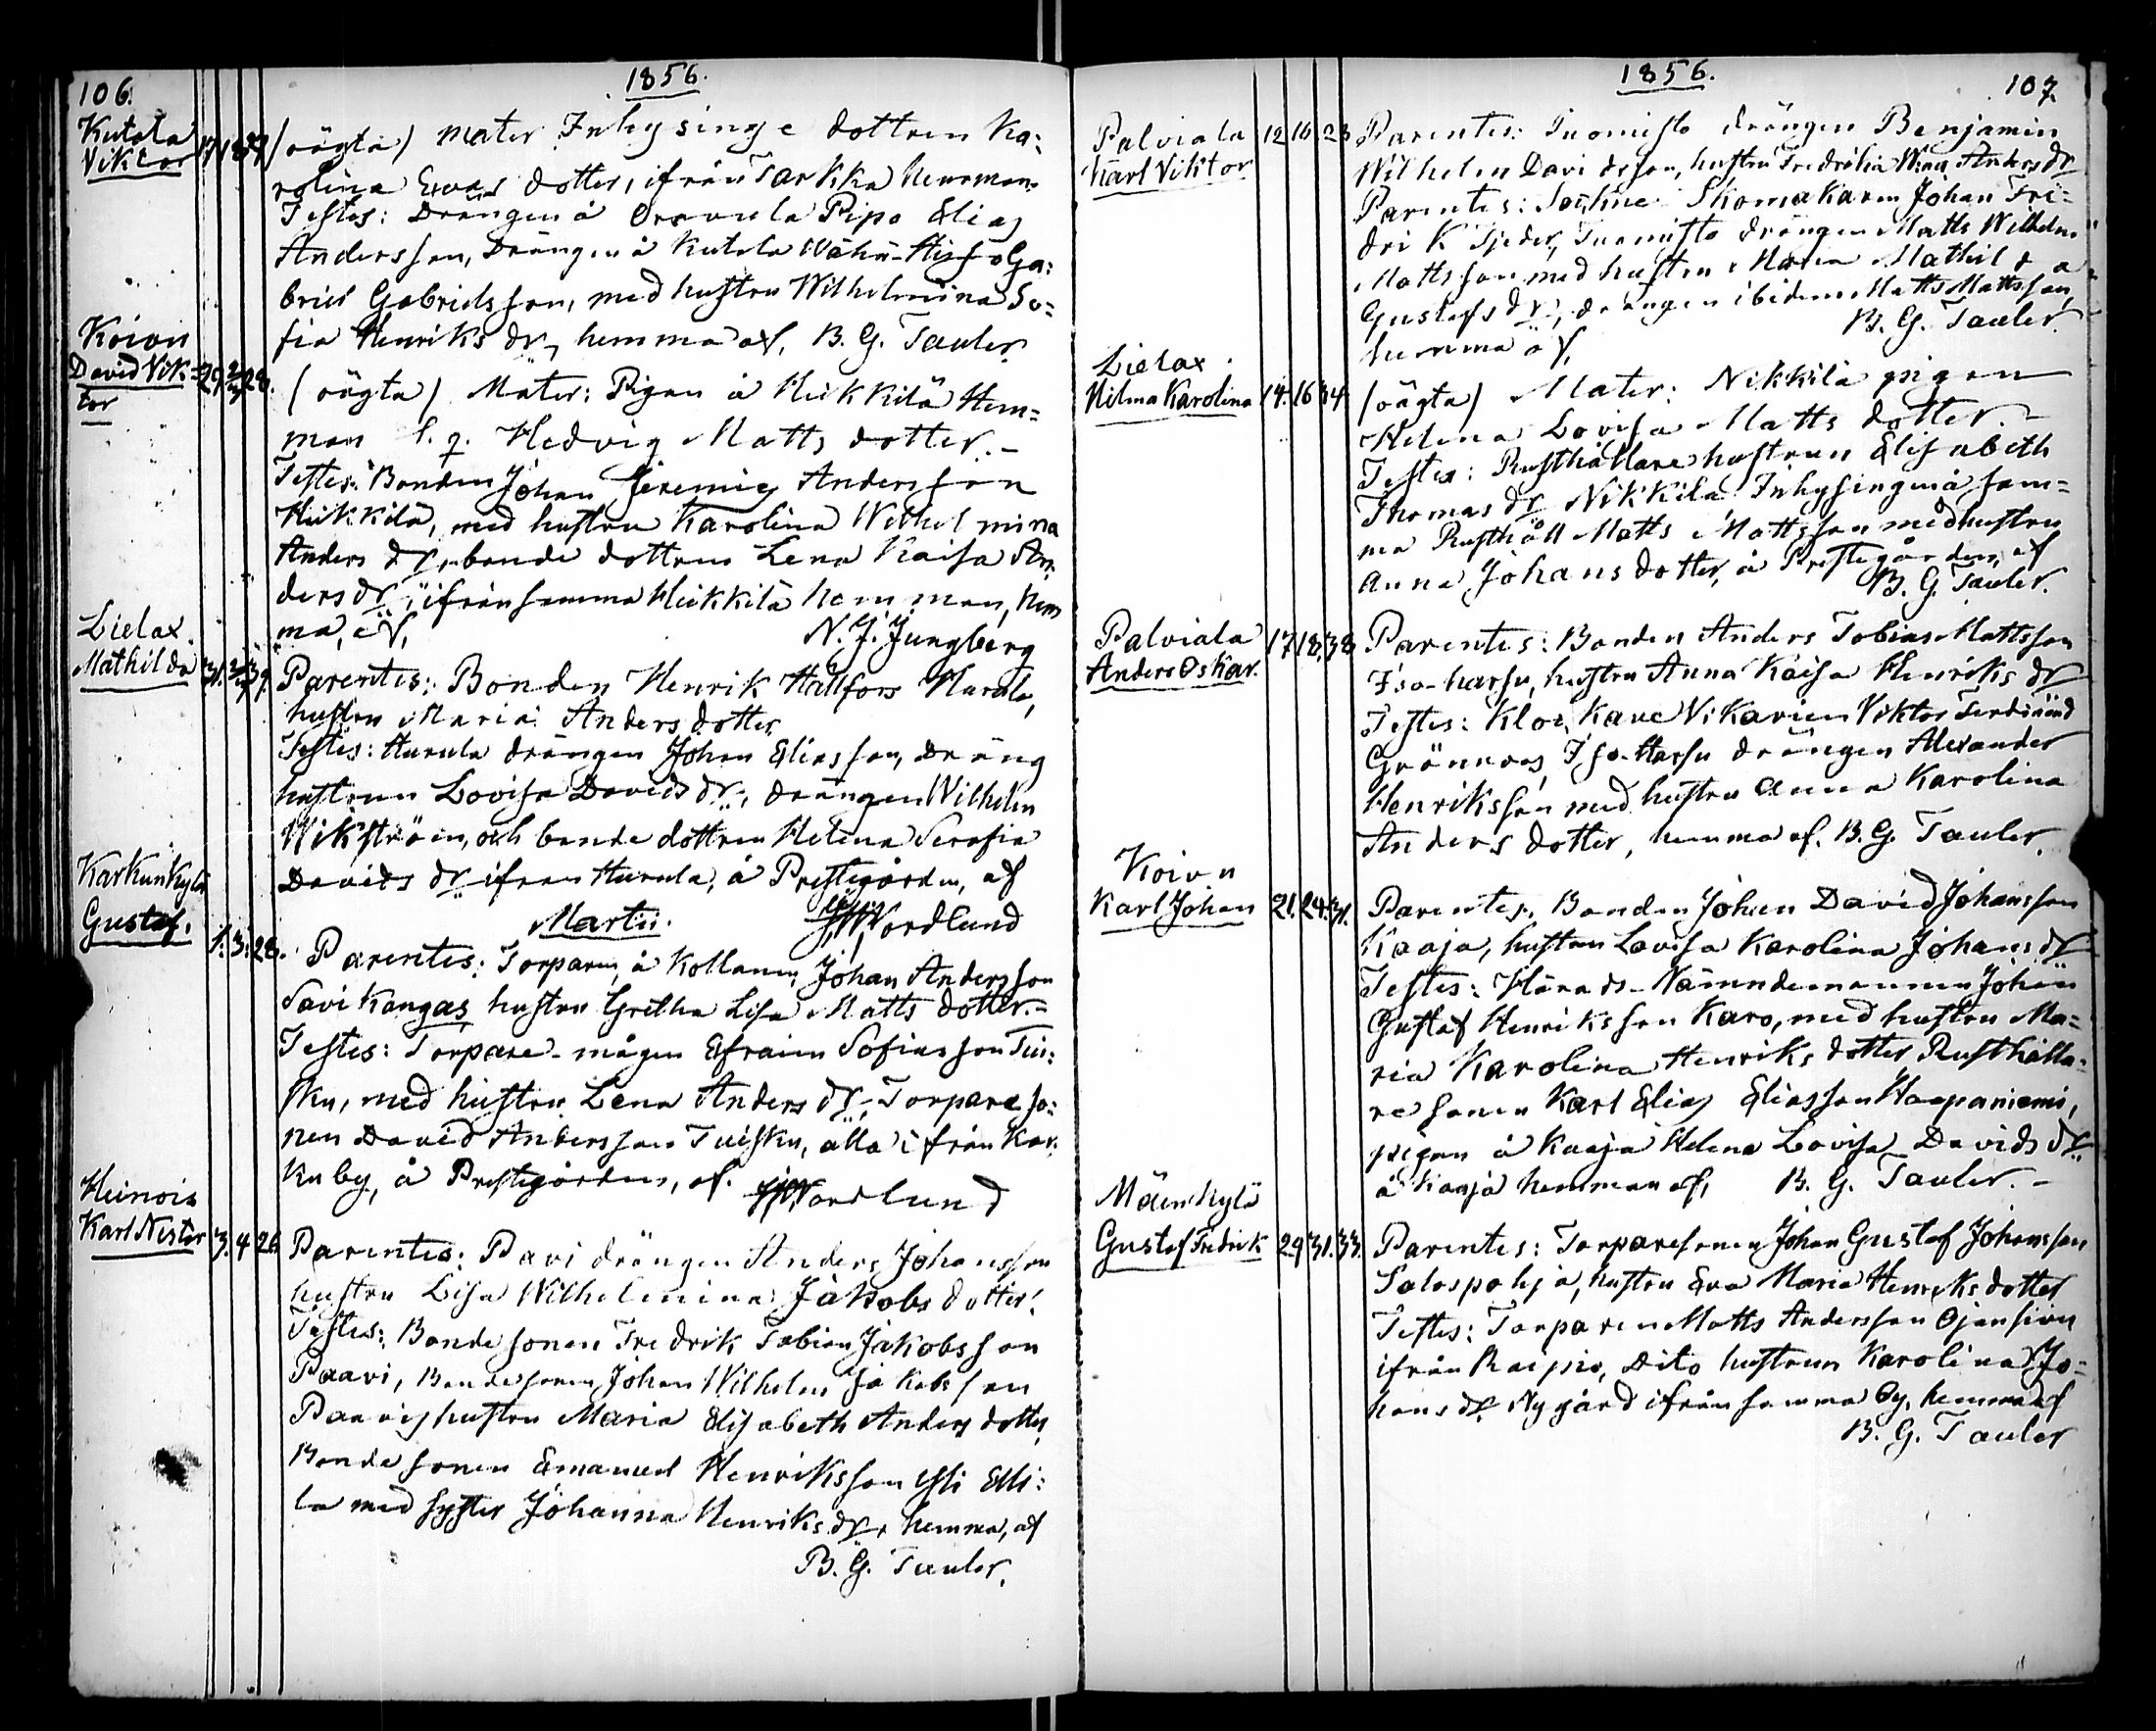 106.
1856.
Kutala
Viktor 17 18 27
(oägta) Mater Inhysinge dottren Ka:
rolina Evas dotter, ifrån Tarkka Hemman
Testes: Drängen å Oravula Pipo Elias
Andersson, Drängen å Kutala Wähä-Hisso Ga:
briel Gabrielsson, med hustru Wilhelmina So=
fia Henriks dr, hemma af, B. G. Tauler
Koivu
David Vik=
tor 29 2/2 28.
(oägta) Mater: Pigan å Heikkilä Hem=
man l. q. Hedvig Matts dotter.-
Testes: Bonden Johan Jeremias Andersson
Heikkilä, med hustru Karolina Wilhelmina
Anders dr, bonde dottren Lena Kaisa An:
ders dr, ifrån samma Heikkilä hemman, hem
ma, af, N. J. Jungberg
Lielax.
Mathilda 31. 2/2 39.
Parentes: Bonden Henrik Hällfors Hurula,
hustru Maria Anders dotter
Testes: Hurula drängen Johan Eliasson, Dräng
hustrun Lovisa Davids dr, drängen Wilhelm
Wikström, och bonde dottren Helena Serafia
Davids dr ifrån Hurula, å Prestegården, af
Nordlund
Martii.
Karkunkylä
Gustaf. 1. 3. 28.
Parentes: Torparen å Kollanen, Johan Andersson
Savikangas hustru Gretha Lisa Matts dotter.-
Testes: Torpare-mågen Efraim Sofiasson Tui:
sku, med hustru Lena Anders dr, Torpare so:
nen David Andersson Tuisku, alla ifrån Kar:
kuby, å Prestegården, af. Nordlund
Heinois
Karl Nestor 3. 4 26
Parentes: Pavi drängen Anders Johansson
hustru Lisa Wilhelmina Jakobs dotter.
Testes: Bonde sonen Fredrik Tobias Jakobsson
Paavi, Bonde sonen Johan Wilhelm Jakobsson
Paavis hustru Maria Elisabeth Anders dotter,
Bonde sonen Emanuel Henriksson Yli Elli:
la med syster Johanna Henriks dr, hemma, af
B. G. Tauler.
1856.
107.
Palviala
Karl Viktor 12 16 23
Parentes: Tuomisto drängen Benjamin
Wilhelm Davidsson, hustru Fredrika Wina Anders dr
Parentes: Sockne Skomakaren Johan Fre=
drik Tjeder, Tuomisto drängen Matts Wilhelm
Mattsson med hustru Maria Mathilda
Gustafs dr, drängen ibidem Matts Mattsson,
hemma af, B. G. Tauler.
Lielax.
Hilma Karolina 14. 16 34
(oägta) Mater: Nikkilä pigan
Helena Lovisa Matts dotter.-
Testes: Rusthållarehustrun Elisabeth
Thomas dr Nikkilä Inhysing å sam=
ma Rusthåll Matts Mattsson med hustru
Anna Johans dotter, å Prestegården, af
B. G. Tauler.
Palviala
Anders Oskar. 17 18 38
Parentes: Bonden Anders Tobias Mattsson
Iso-harsu, hustru Anna Kaisa Henriks dr
Testes: Klockare Vikarien Viktor Ferdinand
Grönroos, Iso-Harsu drängen Alexander
Henriksson med hustru Anna Karolina
Anders dotter, hemma af. B. G. Tauler.
Koivu
Karl Johan 21. 24. 31.
Parentes: Bonden Johan David Johansson
Kaaja, hustru Lovisa Karolina Johans dr
Testes: Härads-Nämndemannen Johan
Gustaf Henriksson Karo, med hustru Ma=
ria Karolina Henriks dotter Rusthålla=
re sonen Karl Elias Eliasson Haapaniemi,
pigan å Kaaja Helena Lovisa Davids dr
å Kaaja hemman af, B. G. Tauler.-
Mäenkylä
Gustaf Fredrik 29 31. 33.
Parentes: Torparesonen Johan Gustaf Johansson
Salospohja, hustru Eva Maria Henriks dotter
Testes: Torparen Matts Andersson Ojansivu
ifrån Raipio, Dito hustrun Karolina Jo=
hans dr Nygård ifrån samma by, hemma af
B. G. Tauler